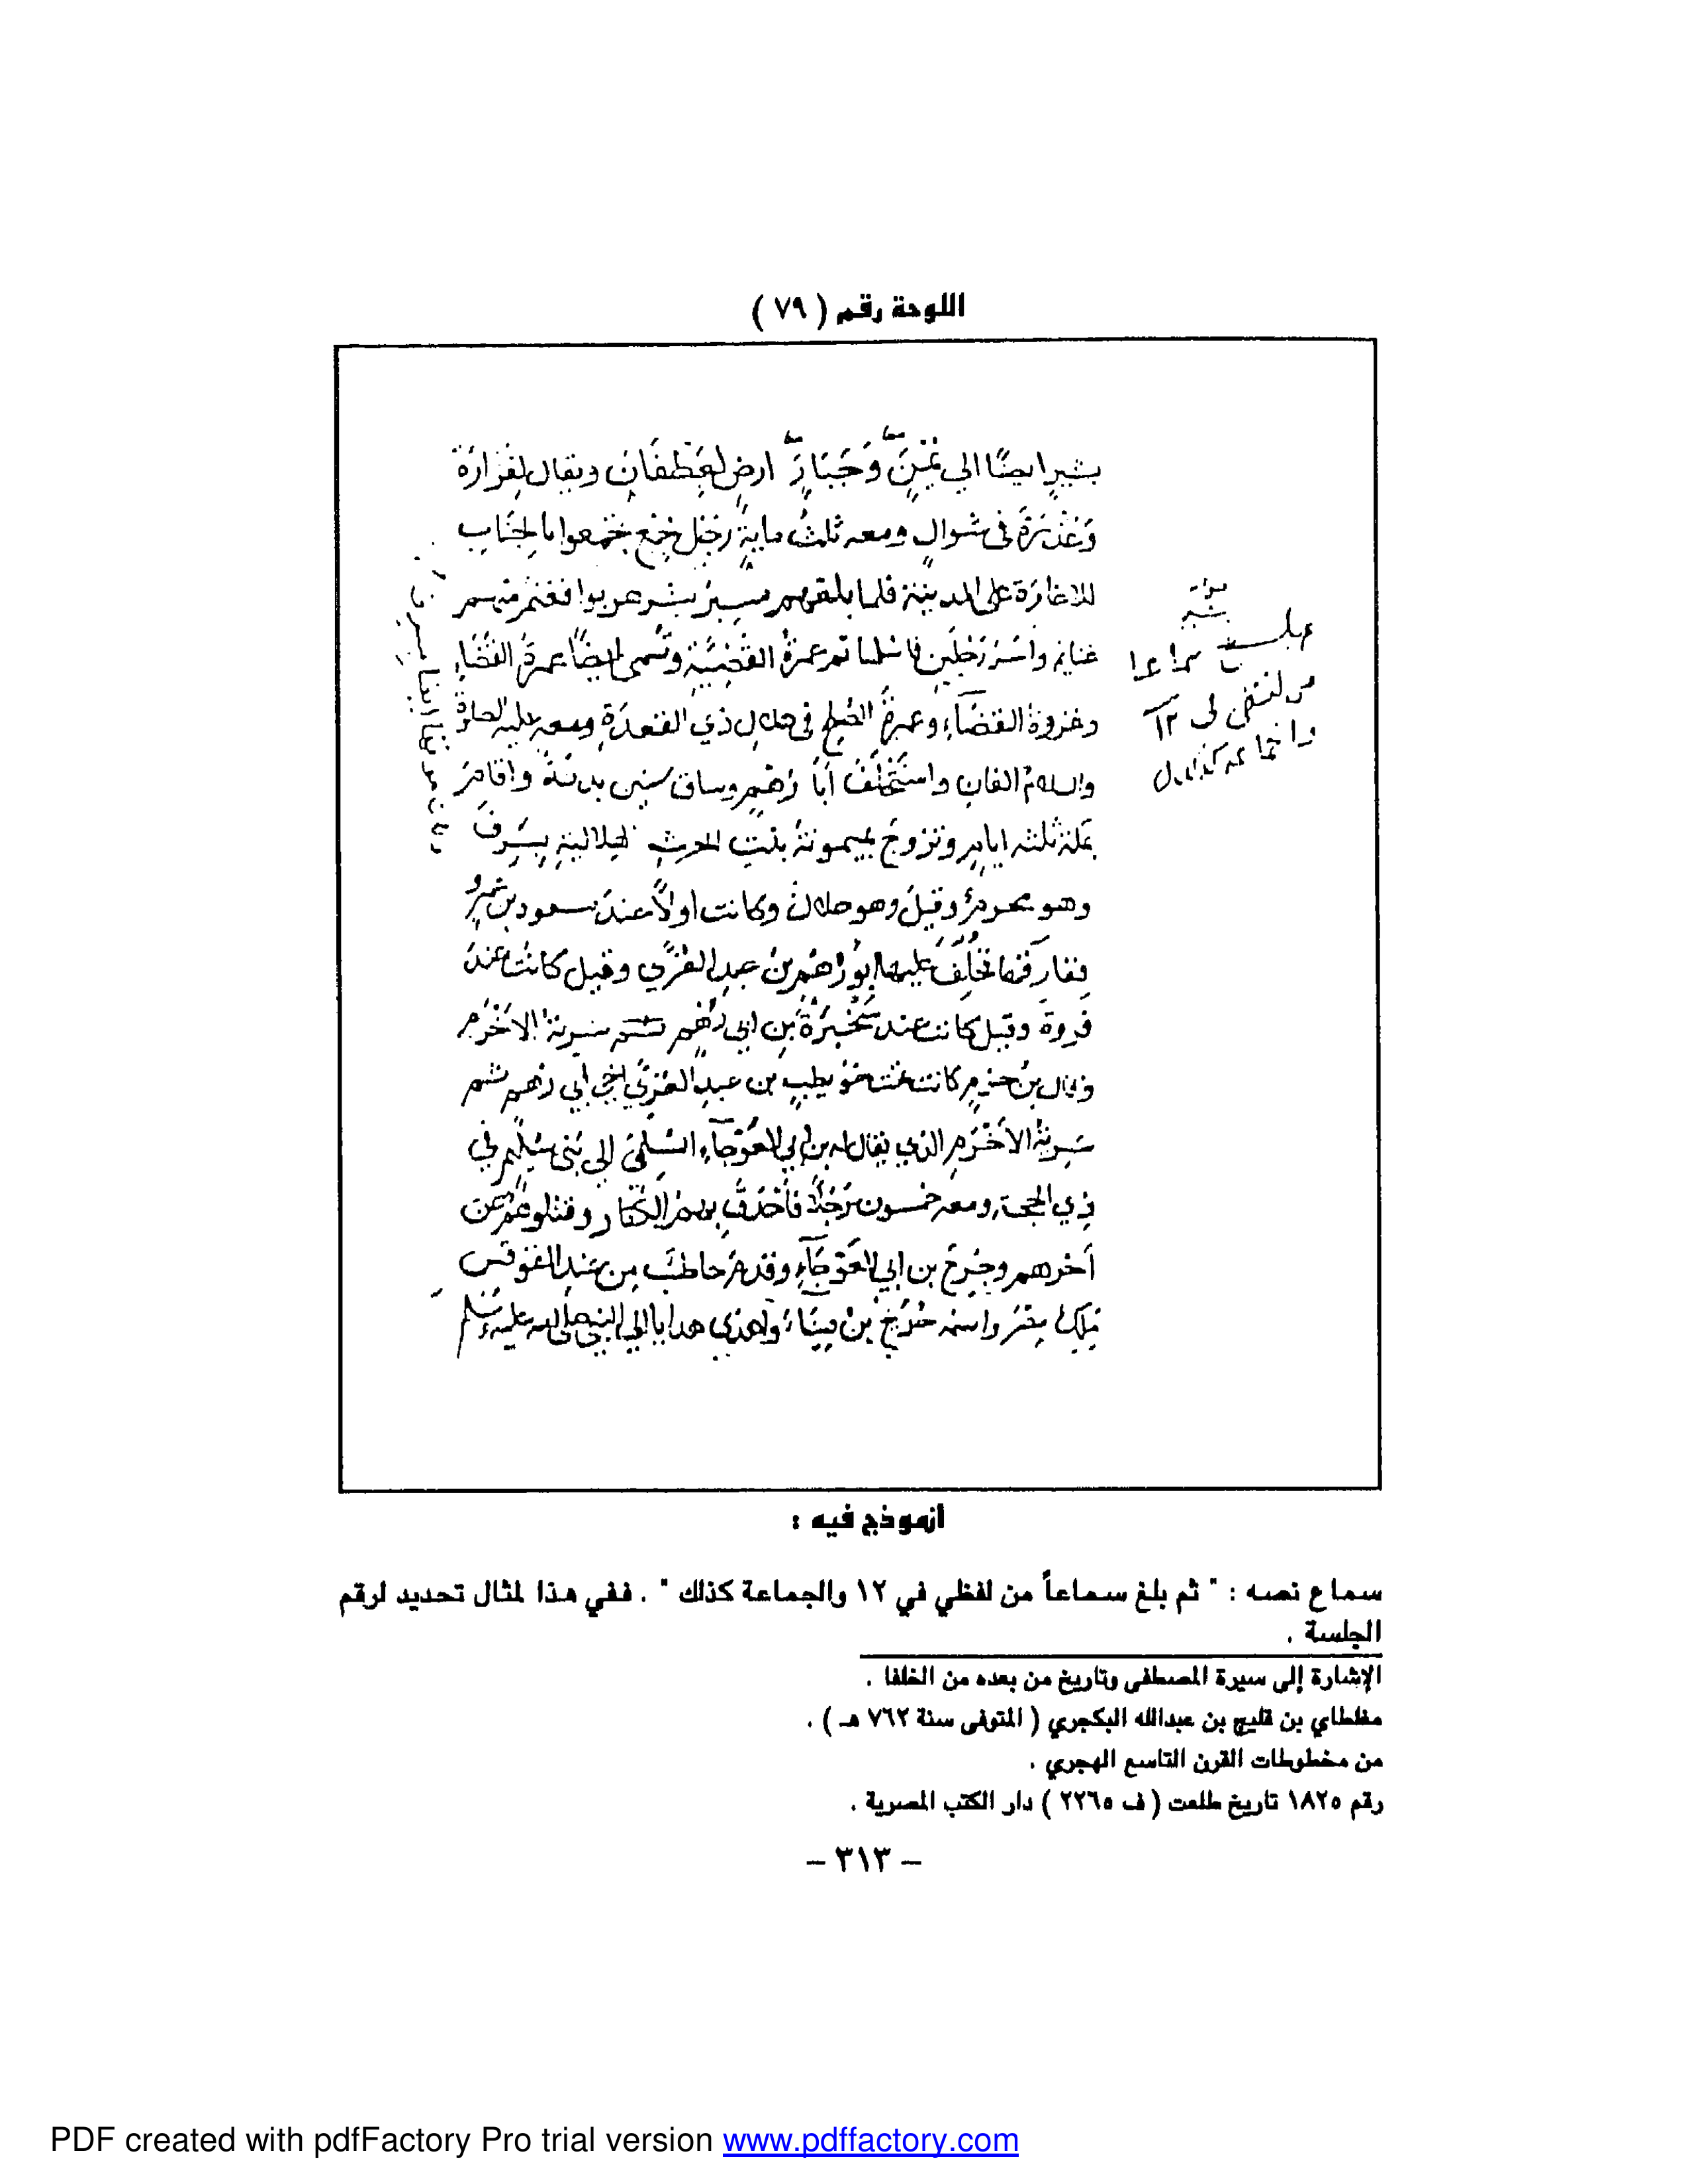 اللوحة رقم ( ٧٩ )
بشيرا ايضًا الي يَمْنٍ وَجَبَارٍ ارض لغَطَفَان ويقال لفزارَة
وَعُذْرَةَ في شوالٍ ومعه ثلثُ مايةِ رجل لجمع تجمعوا بالجناب
للاغارة على المدينة فلما بلغهم مسير بشير هربوا فغنم منهم
غنايم واسَرَ رَجُلَين فاسلما ثم عمرةُ القَضيَّة وتُسمى ايضًا عمرةَ القَضَاءِ
وغزوة القضاءِ وعمرةُ الصُلح في هلال ذي القعدةِ ومعه عليه الصلوة
والسلام الفان واستَخْلَفَ اَبا رُهْمٍ وساق ستين بدنةً واقامَ
بمكة ثلثه ايامٍ وتزوجَ بميمونةَ بنتِ الحرثِ الهلاليةِ بِسَرِفَ
وهو محرمٌ وقيلَ وهو حلالٌ وكانت اولًا عندَ مسعود بن عَمرٍو
ففارقها فخَلَفَ عليها ابو رُهْمِ بنُ عبدِ العُزَّي وقيل كانت عندَ
فَروةَ وقيل كانت عند سَخْبَرَةَ بنِ ابي رُهْمٍ ثم سرية الاَخْرَمِ
وقال بنُ حزمٍ كانت تحت حُوَيطِبِ بن عبدِ العُزَّي اخي ابي رُهم ثم
سَريةُ الاَخْرَمِ الذي يقال له بن ابي العَوْجَآءِ السُّلَميّ الي بَني سُلَيم في
ذي الحجة ومعه خمسون رَجُلًا فأحْدَقَ بهم الكفار وقتلوهُم عن
اَخرهم وجُرِحَ بن ابي العَوْجَآءِ وقدمَ حاطبٌ مِن عند المقوقس
مَلِكِ مِصْرَ واسمُه جُرَيْجُ بنُ مِينَاءَ واهدَي هدايا الي النبي صلى الله عليه وسلم
سماعا
من لفظي في ١٢
والجماعة كذلك
انموذج فيه :
سماع نصه : " ثم بلغ سماعاً من لفظي في ١٢ والجماعة كذلك " . ففي هذا لمثال تحديد لرقم
الجلسة .
الإشارة إلى سيرة المصطفى وتاريخ من بعده من الخلفا .
مغلطاي بن قليج بن عبدالله البكجري ( المتوفى سنة ٧٦٢ هـ ) .
من مخطوطات القرن التاسع الهجري .
رقم ١٨٢٥ تاريخ طلعت ( ف ٢٢٦٥ ) دار الكتب المصرية .
– ٣١٣ –
PDF created with pdfFactory Pro trial version www.pdffactory.com